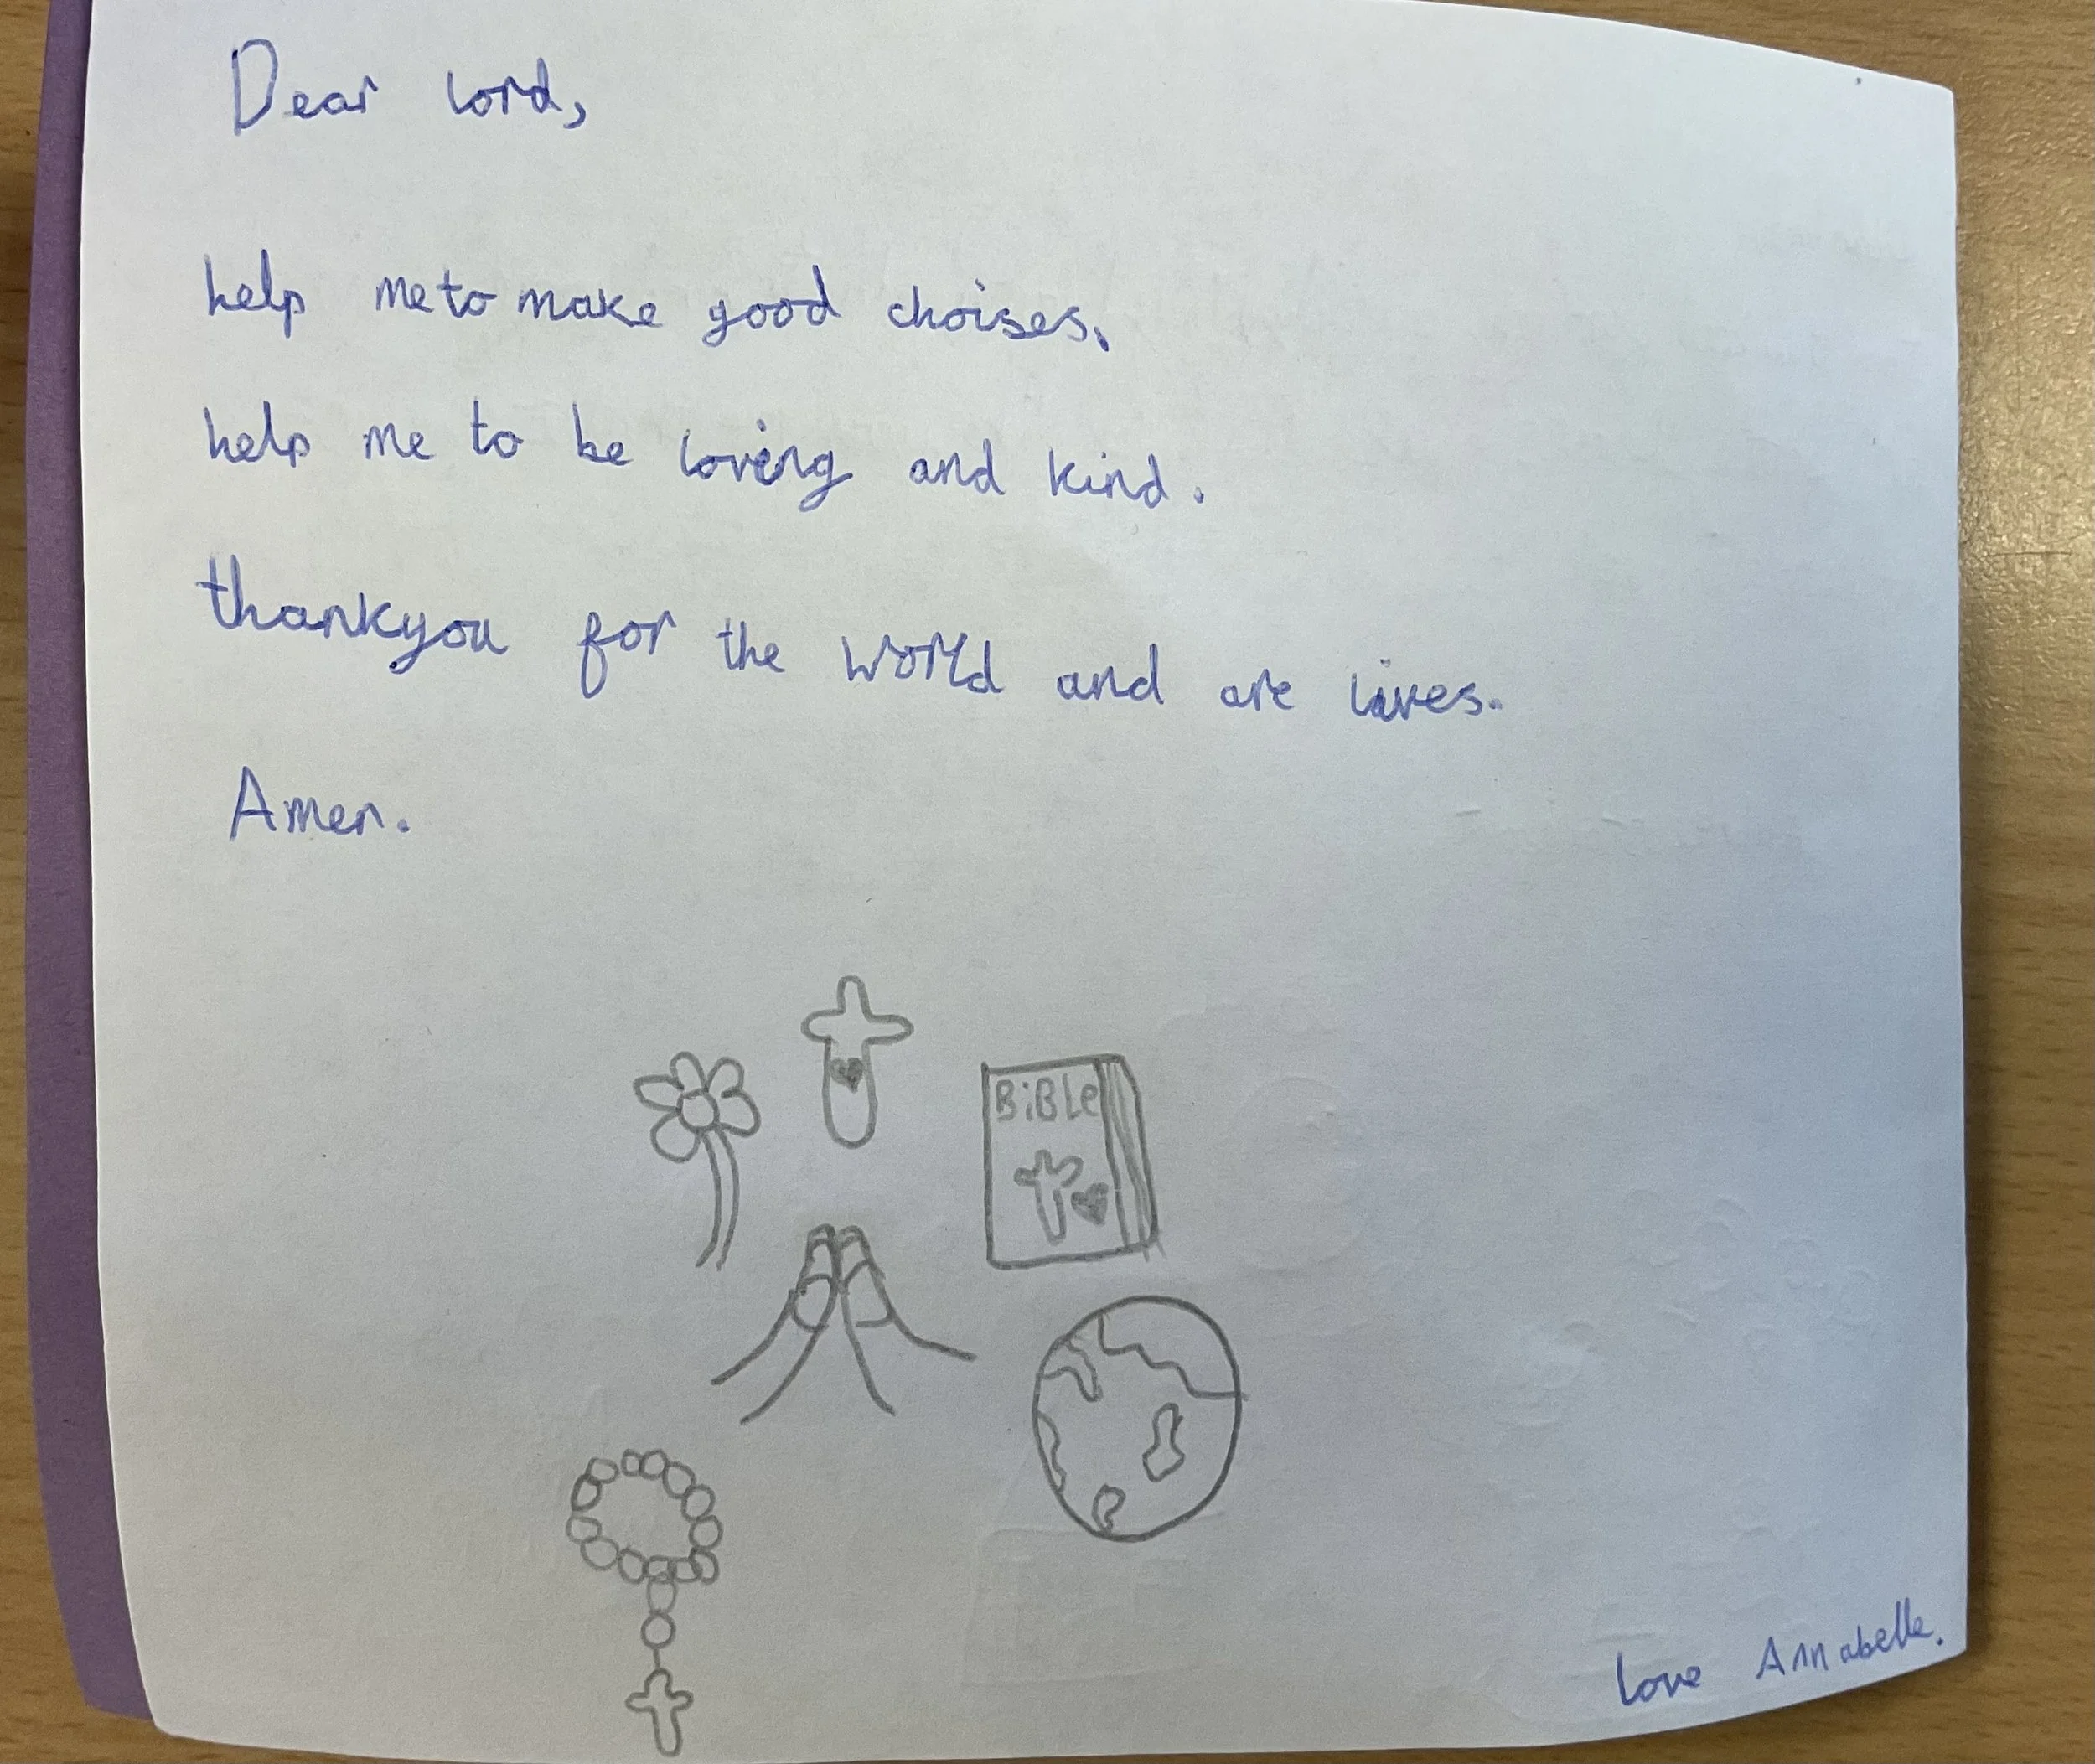 Dear lord,
help me to make good choises.
help me to be loving and kind.
thankyou for the world and are lives.
Amen.
BiBLe
love Annabelle.